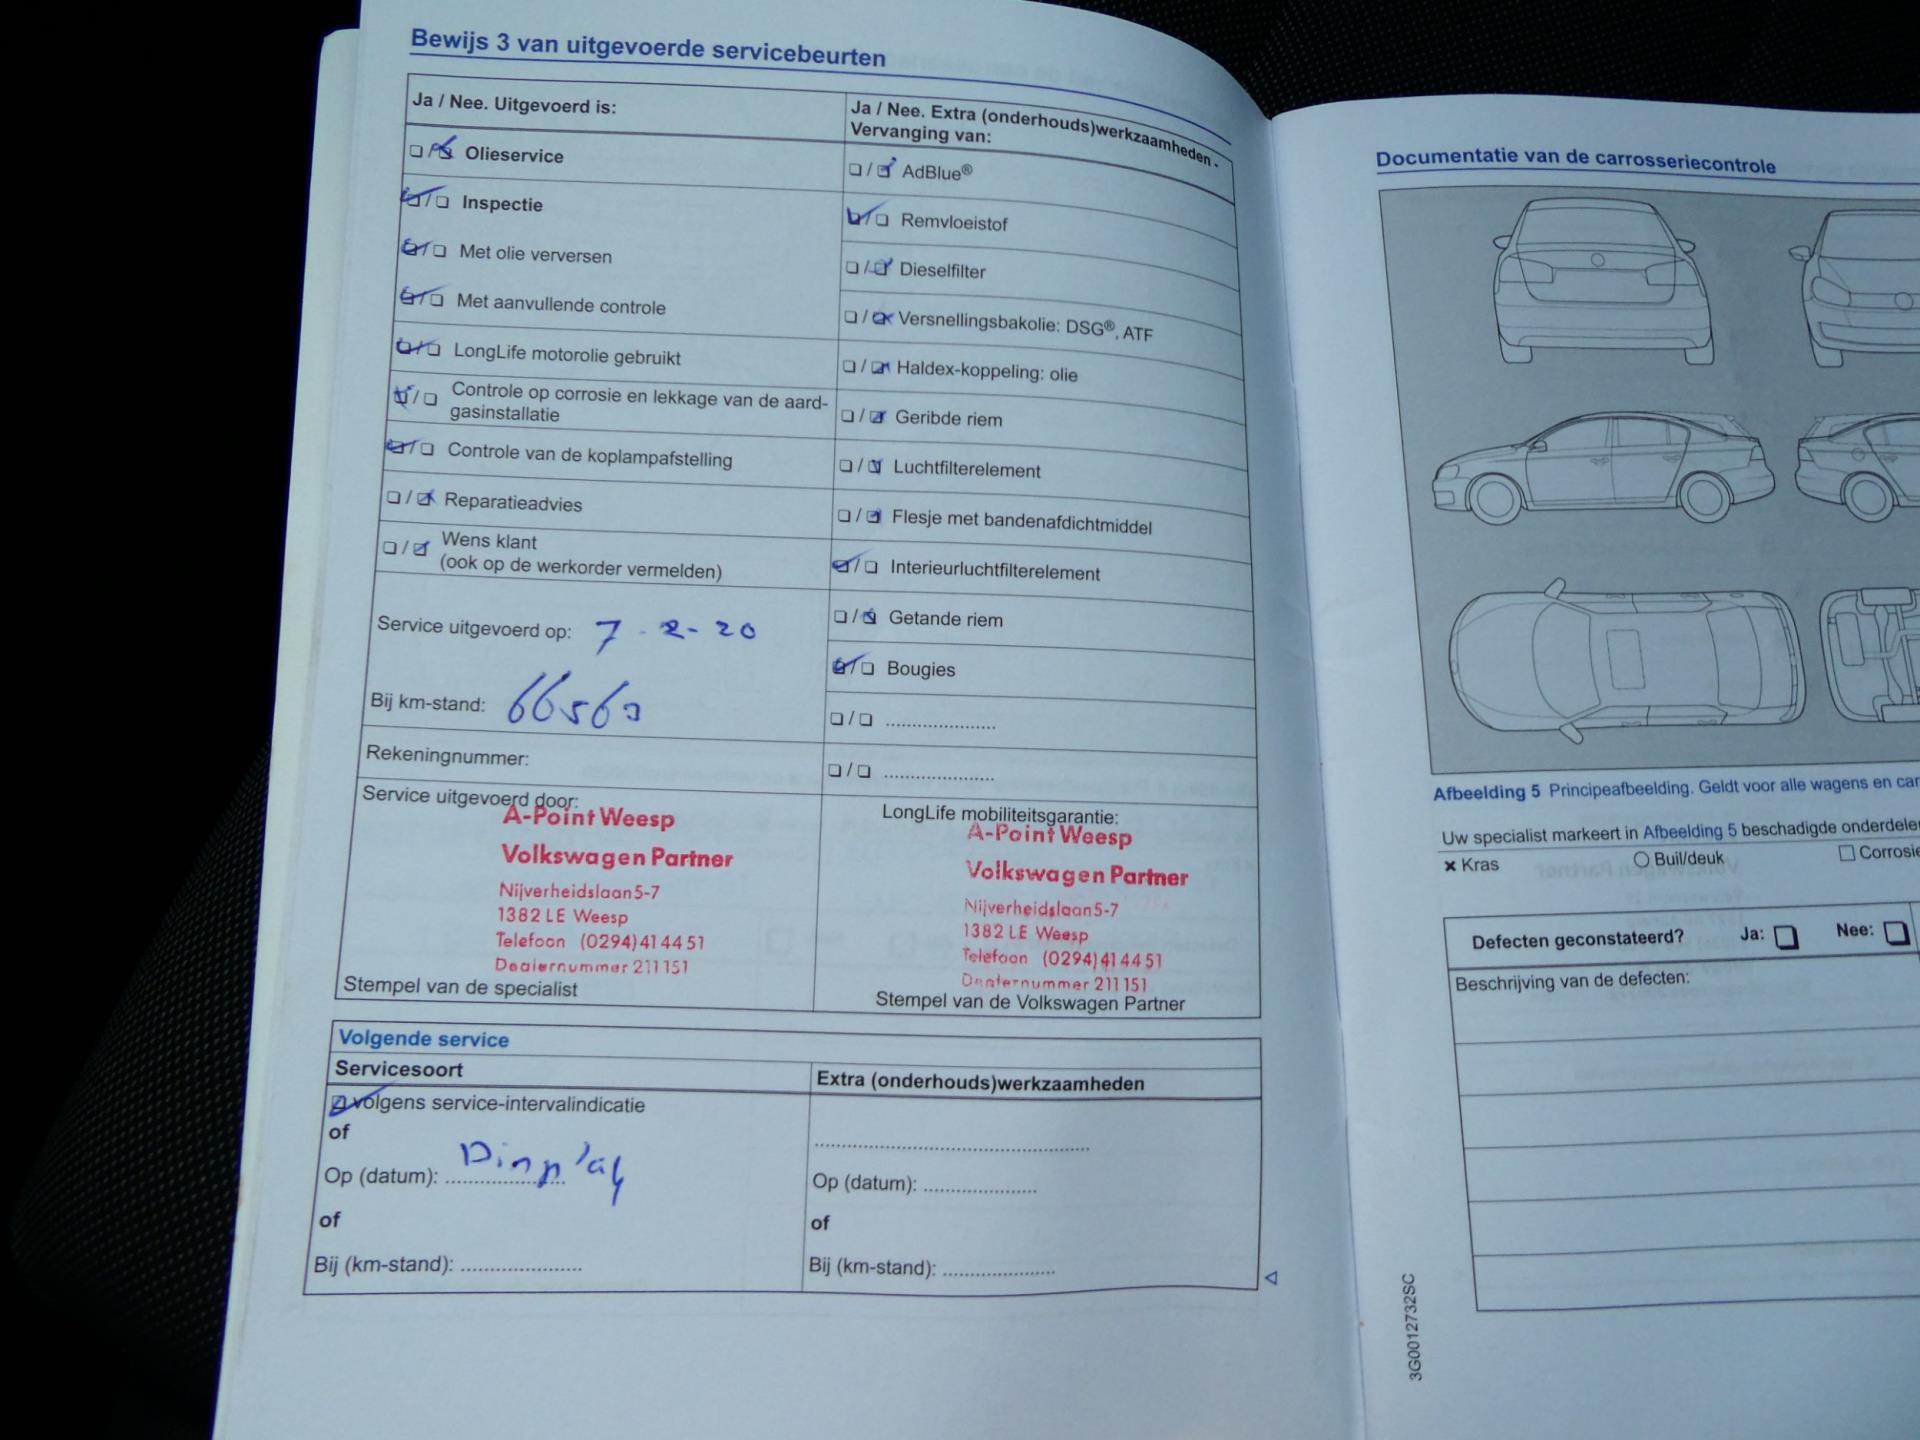 Bewijs 3 van uitgevoerde servicebeurten
Ja / Nee. Uitgevoerd is:
☐ / ☑ Olieservice
☑ / ☐ Inspectie
☑ / ☐ Met olie verversen
☑ / ☐ Met aanvullende controle
☑ / ☐ LongLife motorolie gebruikt
☑ / ☐ Controle op corrosie en lekkage van de aard-
gasinstallatie
☑ / ☐ Controle van de koplampafstelling
☐ / ☑ Reparatieadvies
☐ / ☑ Wens klant
(ook op de werkorder vermelden)
Service uitgevoerd op: 7-2-20
Bij km-stand: 66563
Rekeningnummer:
Service uitgevoerd door:
A-Point Weesp
Volkswagen Partner
Nijverheidslaan 5-7
1382 LE Weesp
Telefoon (0294) 41 44 51
Dealernummer 211 151
Stempel van de specialist
Ja / Nee. Extra (onderhouds)werkzaamheden -
Vervanging van:
☐ / ☑ AdBlue®
☑ / ☐ Remvloeistof
☐ / ☑ Dieselfilter
☐ / ☑ Versnellingsbakolie: DSG®, ATF
☐ / ☑ Haldex-koppeling: olie
☐ / ☑ Geribde riem
☐ / ☑ Luchtfilterelement
☐ / ☑ Flesje met bandenafdichtmiddel
☑ / ☐ Interieurluchtfilterelement
☐ / ☑ Getande riem
☑ / ☐ Bougies
☐ / ☐ ......................
☐ / ☐ ......................
LongLife mobiliteitsgarantie:
A-Point Weesp
Volkswagen Partner
Nijverheidslaan 5-7
1382 LE Weesp
Telefoon (0294) 41 44 51
Dealernummer 211 151
Stempel van de Volkswagen Partner
Volgende service
Servicesoort
☑ volgens service-intervalindicatie
of
Op (datum): ......................
of
Bij (km-stand): ......................
Extra (onderhouds)werkzaamheden
......................
Op (datum): ......................
of
Bij (km-stand): ......................
Documentatie van de carrosseriecontrole
Afbeelding 5 Principeafbeelding. Geldt voor alle wagens en
Uw specialist markeert in Afbeelding 5 beschadigde
× Kras ○ Buil/deuk ☐
Defecten geconstateerd? Ja: ☐ Nee: ☐
Beschrijving van de defecten:
3G0012732SC